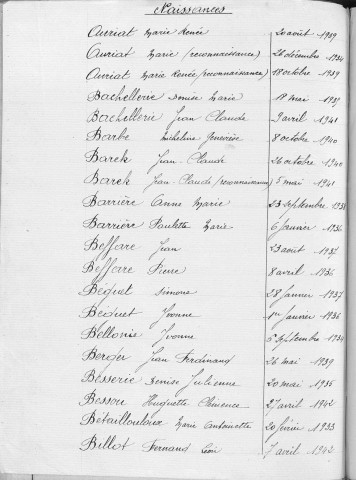 Naissances
Auriat Marie Renée 20 août 1939
Auriat Marie (reconnaissance) 26 décembre 1934
Auriat Marie Renée (reconnaissance) 18 octobre 1939
Bachellerie Denise Marie 18 mai 1939
Bachellerie Jean Claude 9 avril 1941
Barbe Micheline Geneviève 8 octobre 1940
Barek Jean-Claude 26 octobre 1940
Barek Jean-Claude (reconnaissance) 5 mai 1941
Barrière Anne Marie 23 septembre 1938
Barrière Paulette Marie 6 janvier 1936
Beffare Jean 23 août 1937
Beffare Pierre 8 avril 1936
Béquet Simone 28 janvier 1937
Bequet Yvonne 1er janvier 1936
Bellonie Yvonne septembre 1934
Border Jean Ferdinand 26 mai 1939
Besserie Denise Julienne 20 mai 1935
Bessou Huguette Clémence 27 avril 1942
Bétaillouloux Marie Antoinette 20 février 1933
Billot Fernand 7 avril 1942